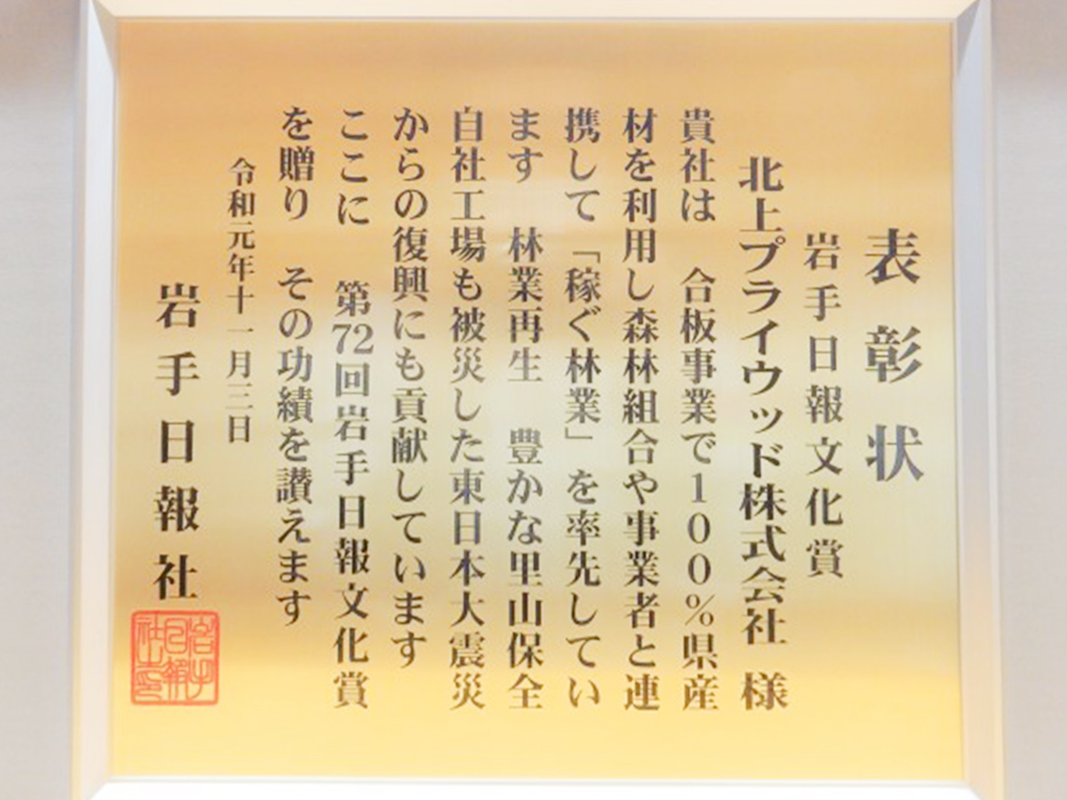 表彰状
岩手日報文化賞
北上プライウッド株式会社 様
貴社は 合板事業で100%県産
材を利用し森林組合や事業者と連
携して「稼ぐ林業」を率先してい
ます 林業再生 豊かな里山保全
自社工場も被災した東日本大震災
からの復興にも貢献しています
ここに 第72回岩手日報文化賞
を贈り その功績を讃えます
令和元年十一月三日
岩手日報社
岩手日報社之印